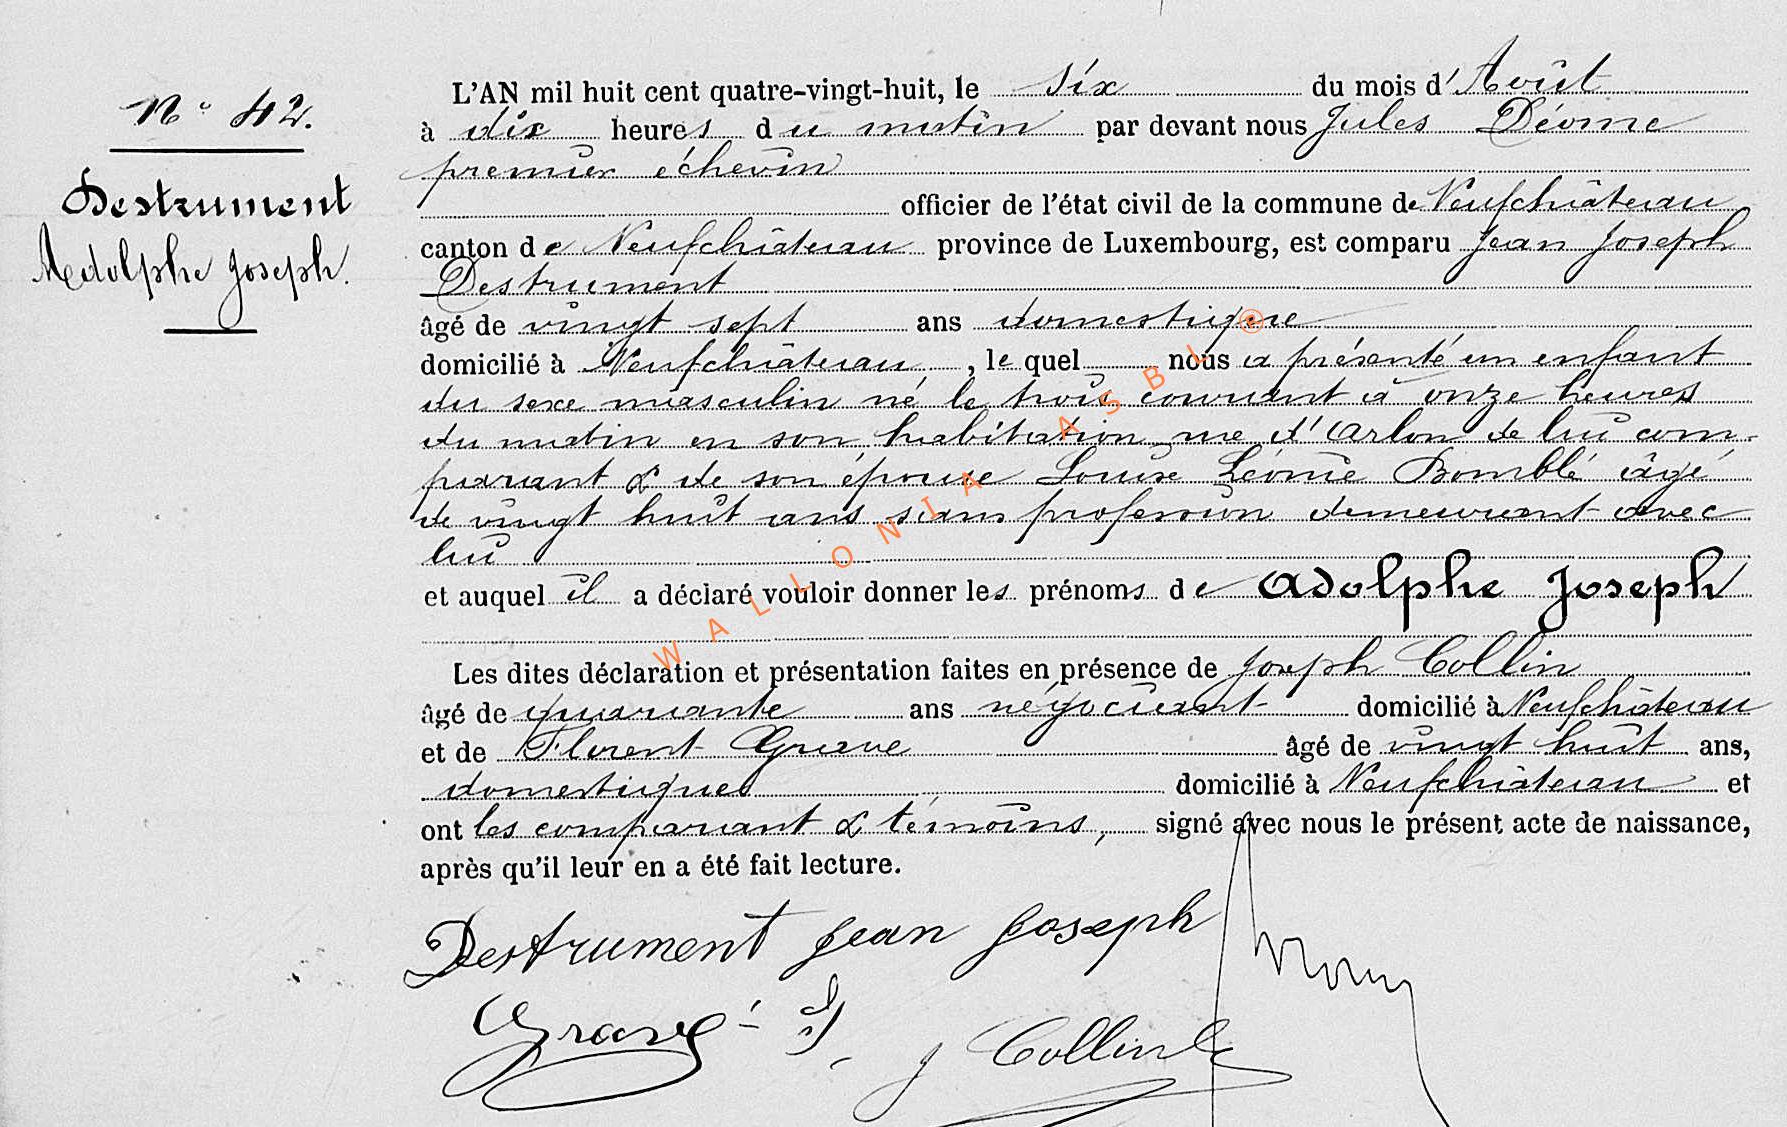 N° 42.
Destrument
Adolphe Joseph.
L'AN mil huit cent quatre-vingt-huit, le six du mois d'Août
à dix heures du matin par devant nous Jules Déome
premier échevin
officier de l'état civil de la commune de Neufchâteau
canton de Neufchâteau province de Luxembourg, est comparu Jean Joseph
Destrument
âgé de vingt sept ans domestique
domicilié à Neufchâteau, le quel nous a présenté un enfant
du sexe masculin né le trois courant à onze heures
du matin en son habitation rue d'Arlon de lui com-
parant & de son épouse Louise Léonie Bomblé âgé
de vingt huit ans sans profession demeurant avec
lui
et auquel il a déclaré vouloir donner les prénoms de Adolphe Joseph
Les dites déclaration et présentation faites en présence de Joseph Collin
âgé de quarante ans négociant domicilié à Neufchâteau
et de Florent Grave âgé de vingt huit ans,
domestique domicilié à Neufchâteau et
ont les comparant & témoins, signé avec nous le présent acte de naissance,
après qu'il leur en a été fait lecture.
Destrument Jean Joseph
Gravé
J Collin
WALLONIA ASBL ©